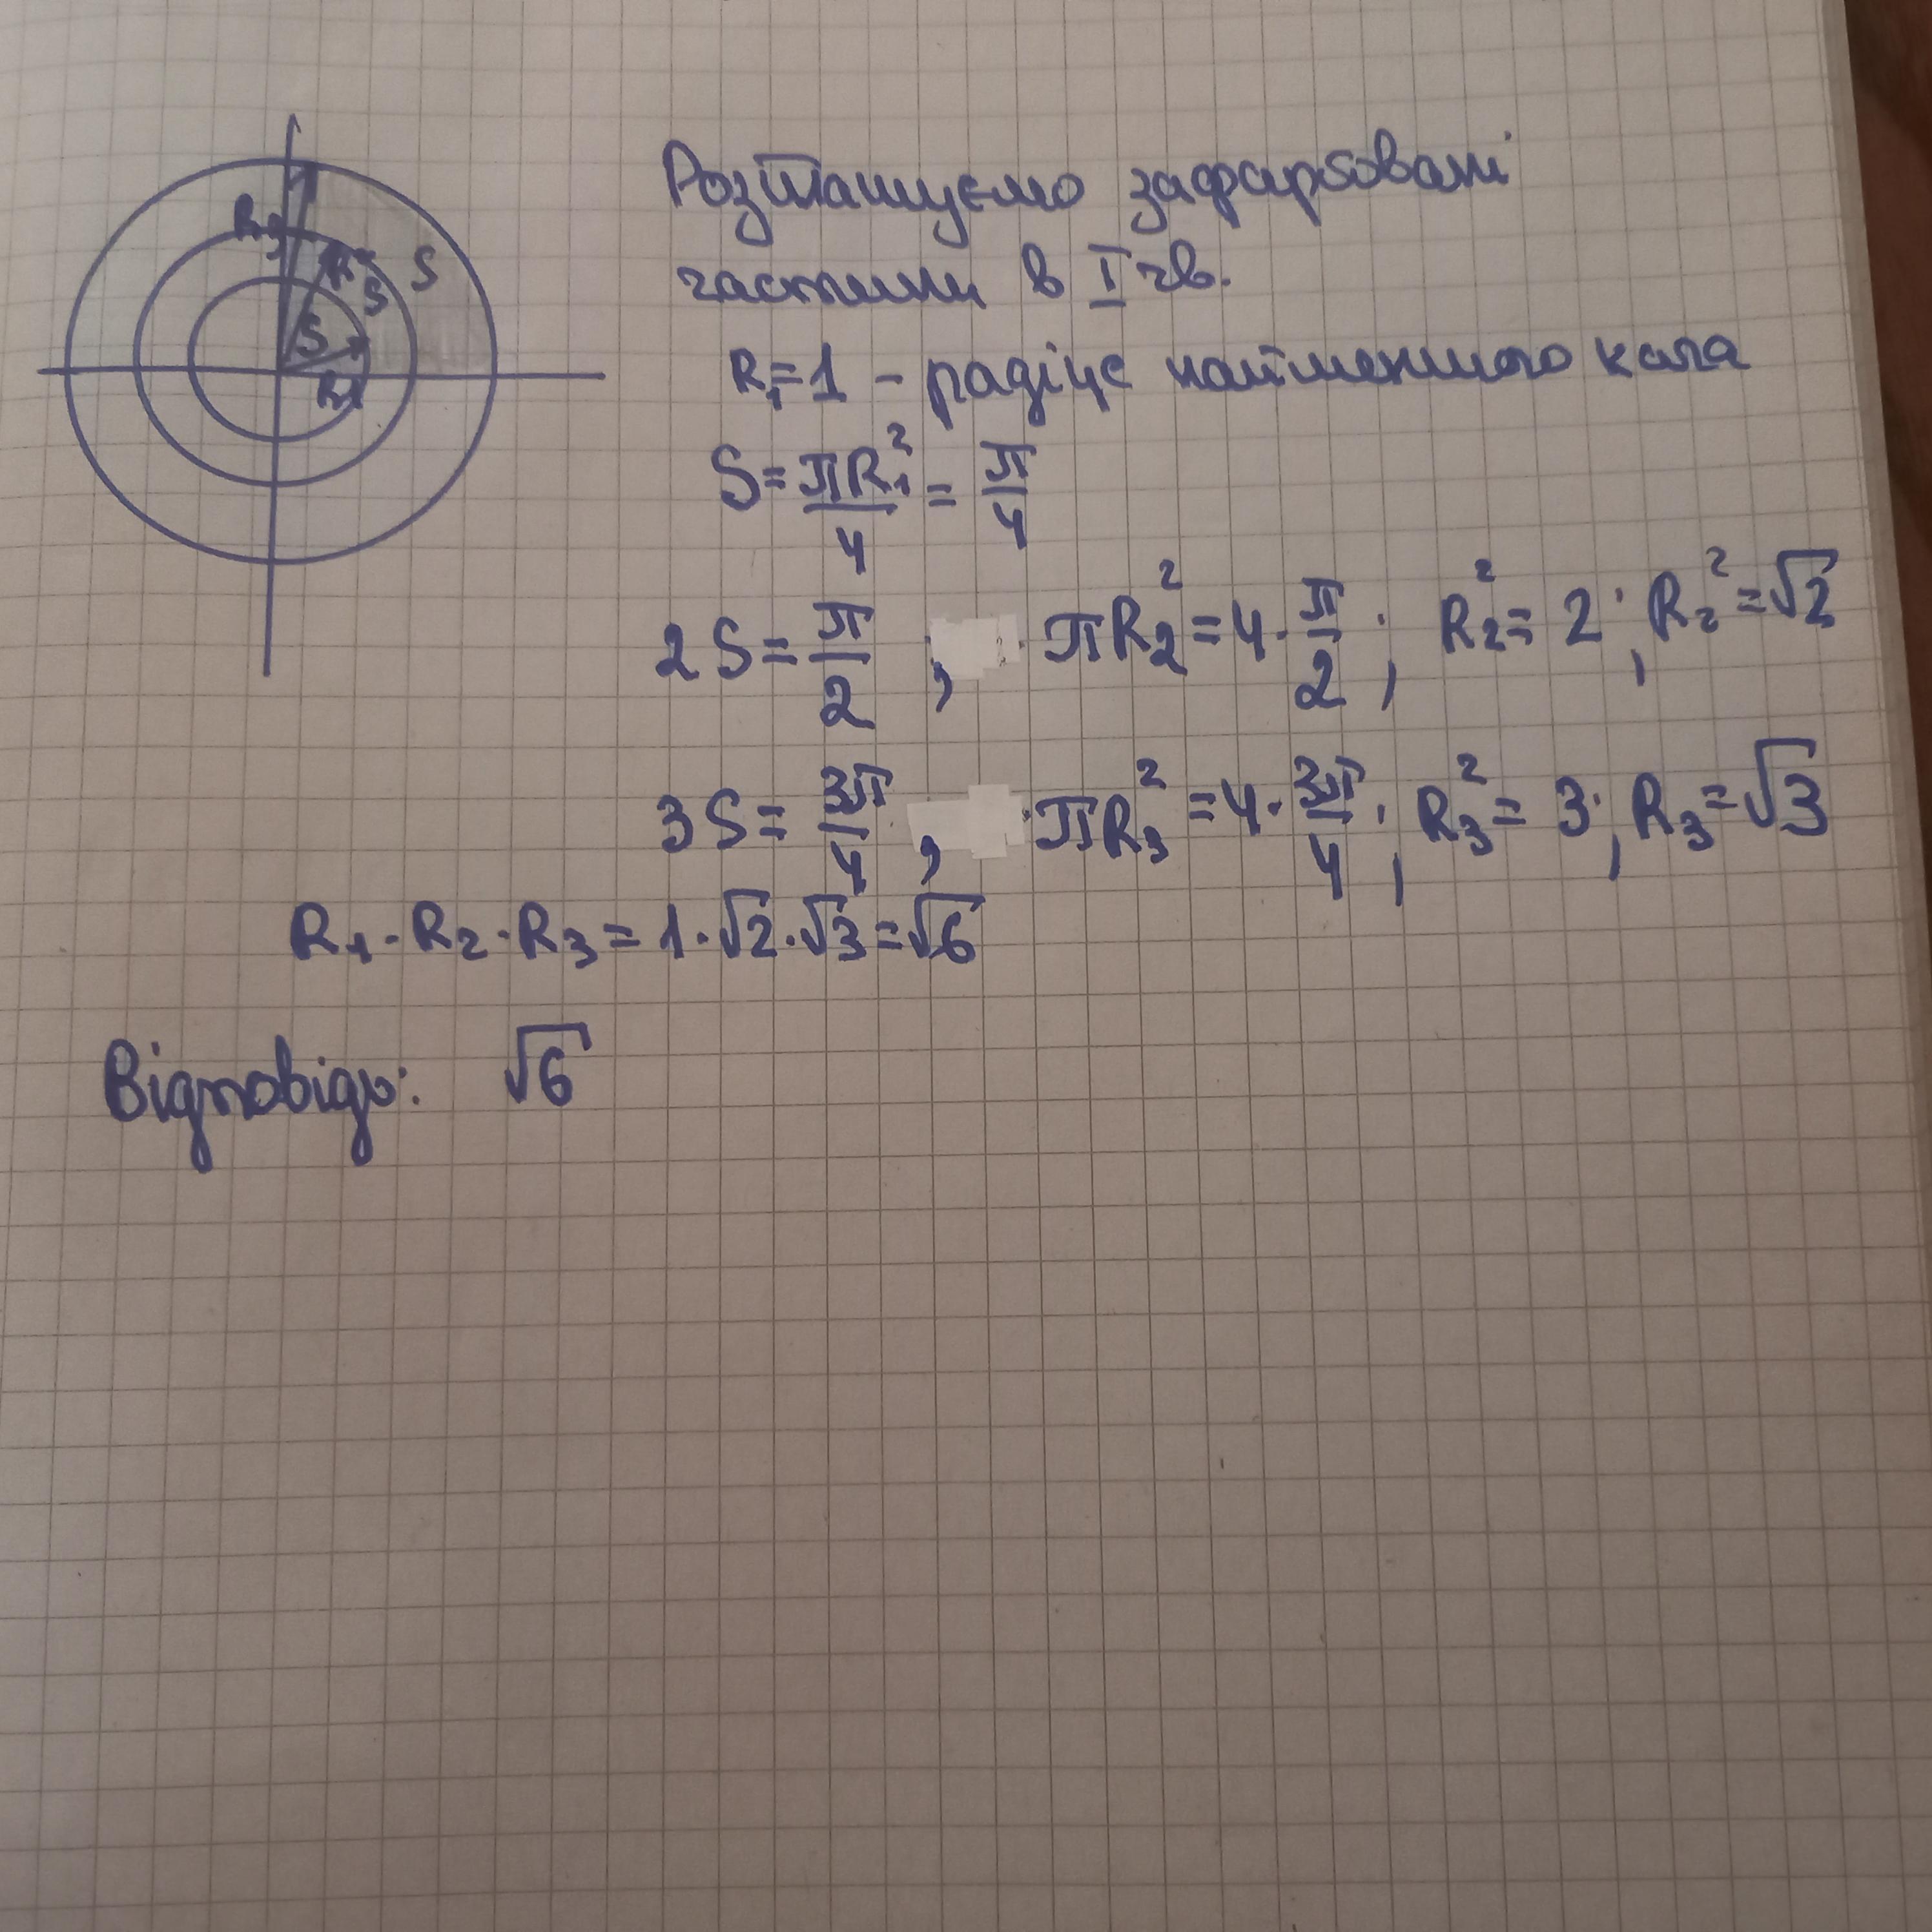 R₃ R₂ S
S
S
R₁
Розташуємо зафарбовані
частини в I чв.
R₁=1 – радіус найменшого кола
S = πR₁²/4 = π/4
2S = π/2 , πR₂² = 4·π/2 ; R₂² = 2 ; R₂² = √2
3S = 3π/4 , πR₃² = 4·3π/4 ; R₃² = 3 ; R₃ = √3
R₁·R₂·R₃ = 1·√2·√3 = √6
Відповідь: √6